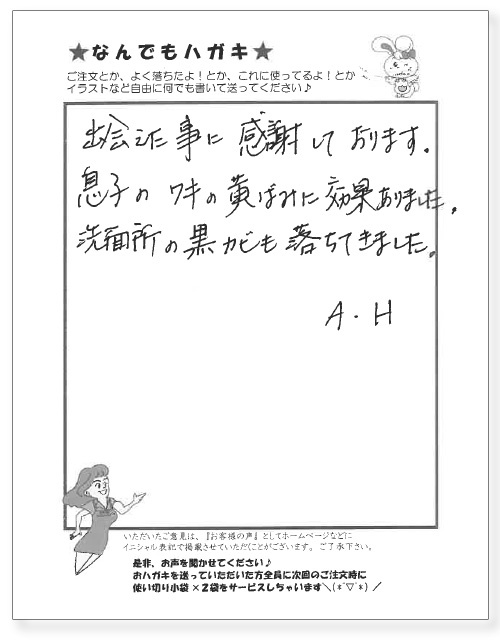 ★なんでもハガキ★
ご注文とか、よく落ちたよ！とか、これに使ってるよ！とか
イラストなど自由に何でも書いて送ってください♪
出会えた事に感謝しております。
息子のワキの黄ばみに効果ありました。
洗面所の黒カビも落ちてきました。
A・H
いただいたご意見は、『お客様の声』としてホームページなどに
イニシャル表記で掲載させていただくことがございます。ご了承下さい。
是非、お声を聞かせてください♪
おハガキを送っていただいた方全員に次回のご注文時に
使い切り小袋×2袋をサービスしちゃいます＼(*ˆ▽ˆ*)／